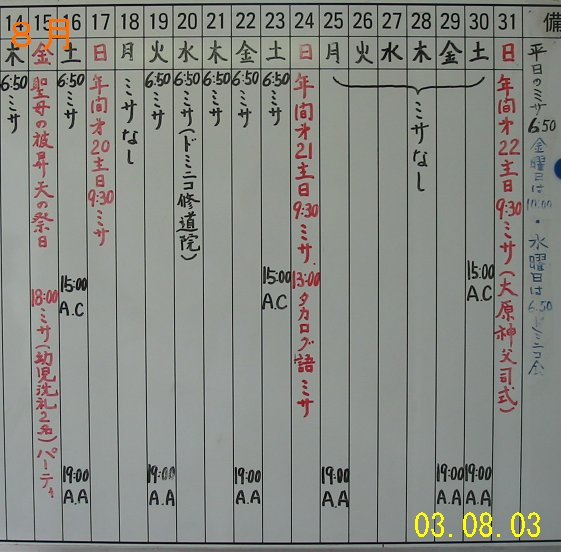 8月
14 15 16 17 18 19 20 21 22 23 24 25 26 27 28 29 30 31 備
木 金 土 日 月 火 水 木 金 土 日 月 火 水 木 金 土 日
6:50 ミサ
聖母の被昇天の祭日 18:00 ミサ(幼児洗礼2名)パーティ
6:50 ミサ 15:00 A.C 19:00 A.A
年間才20主日 9:30 ミサ
ミサなし
6:50 ミサ 19:00 A.A
6:50 ミサ(ドミニコ修道院)
6:50 ミサ
6:50 ミサ 19:00 A.A
6:50 ミサ 15:00 A.C
年間才21主日 9:30 ミサ 13:00 タカログ語ミサ
19:00 A.A
ミサなし
19:00 A.A
15:00 A.C 19:00 A.A
年間才22主日 9:30 ミサ(大原神父司式)
平日のミサ 6:50
金曜日は ・水曜日は 6:50 ドミニコ会
03.08.03